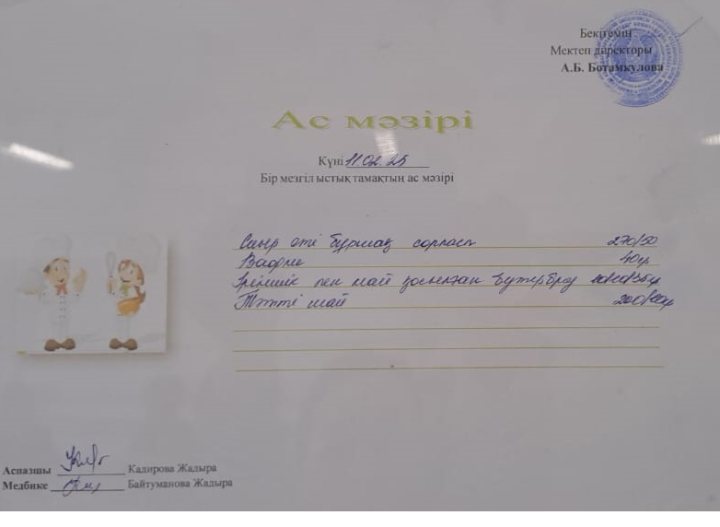 Бекітемін
Мектеп директоры
А.Б. Ботамкулова
Ас мәзірі
Күні 11.02.25
Бір мезгіл ыстық тамақтың ас мәзірі
Сиыр еті бұршақ сорпасы 270/50
Вафли 40гр
Ірімшік пен май қосылған бутерброд
Тәтті шай
Аспазшы Кадирова Жадыра
Медбике Байтуманова Жадыра